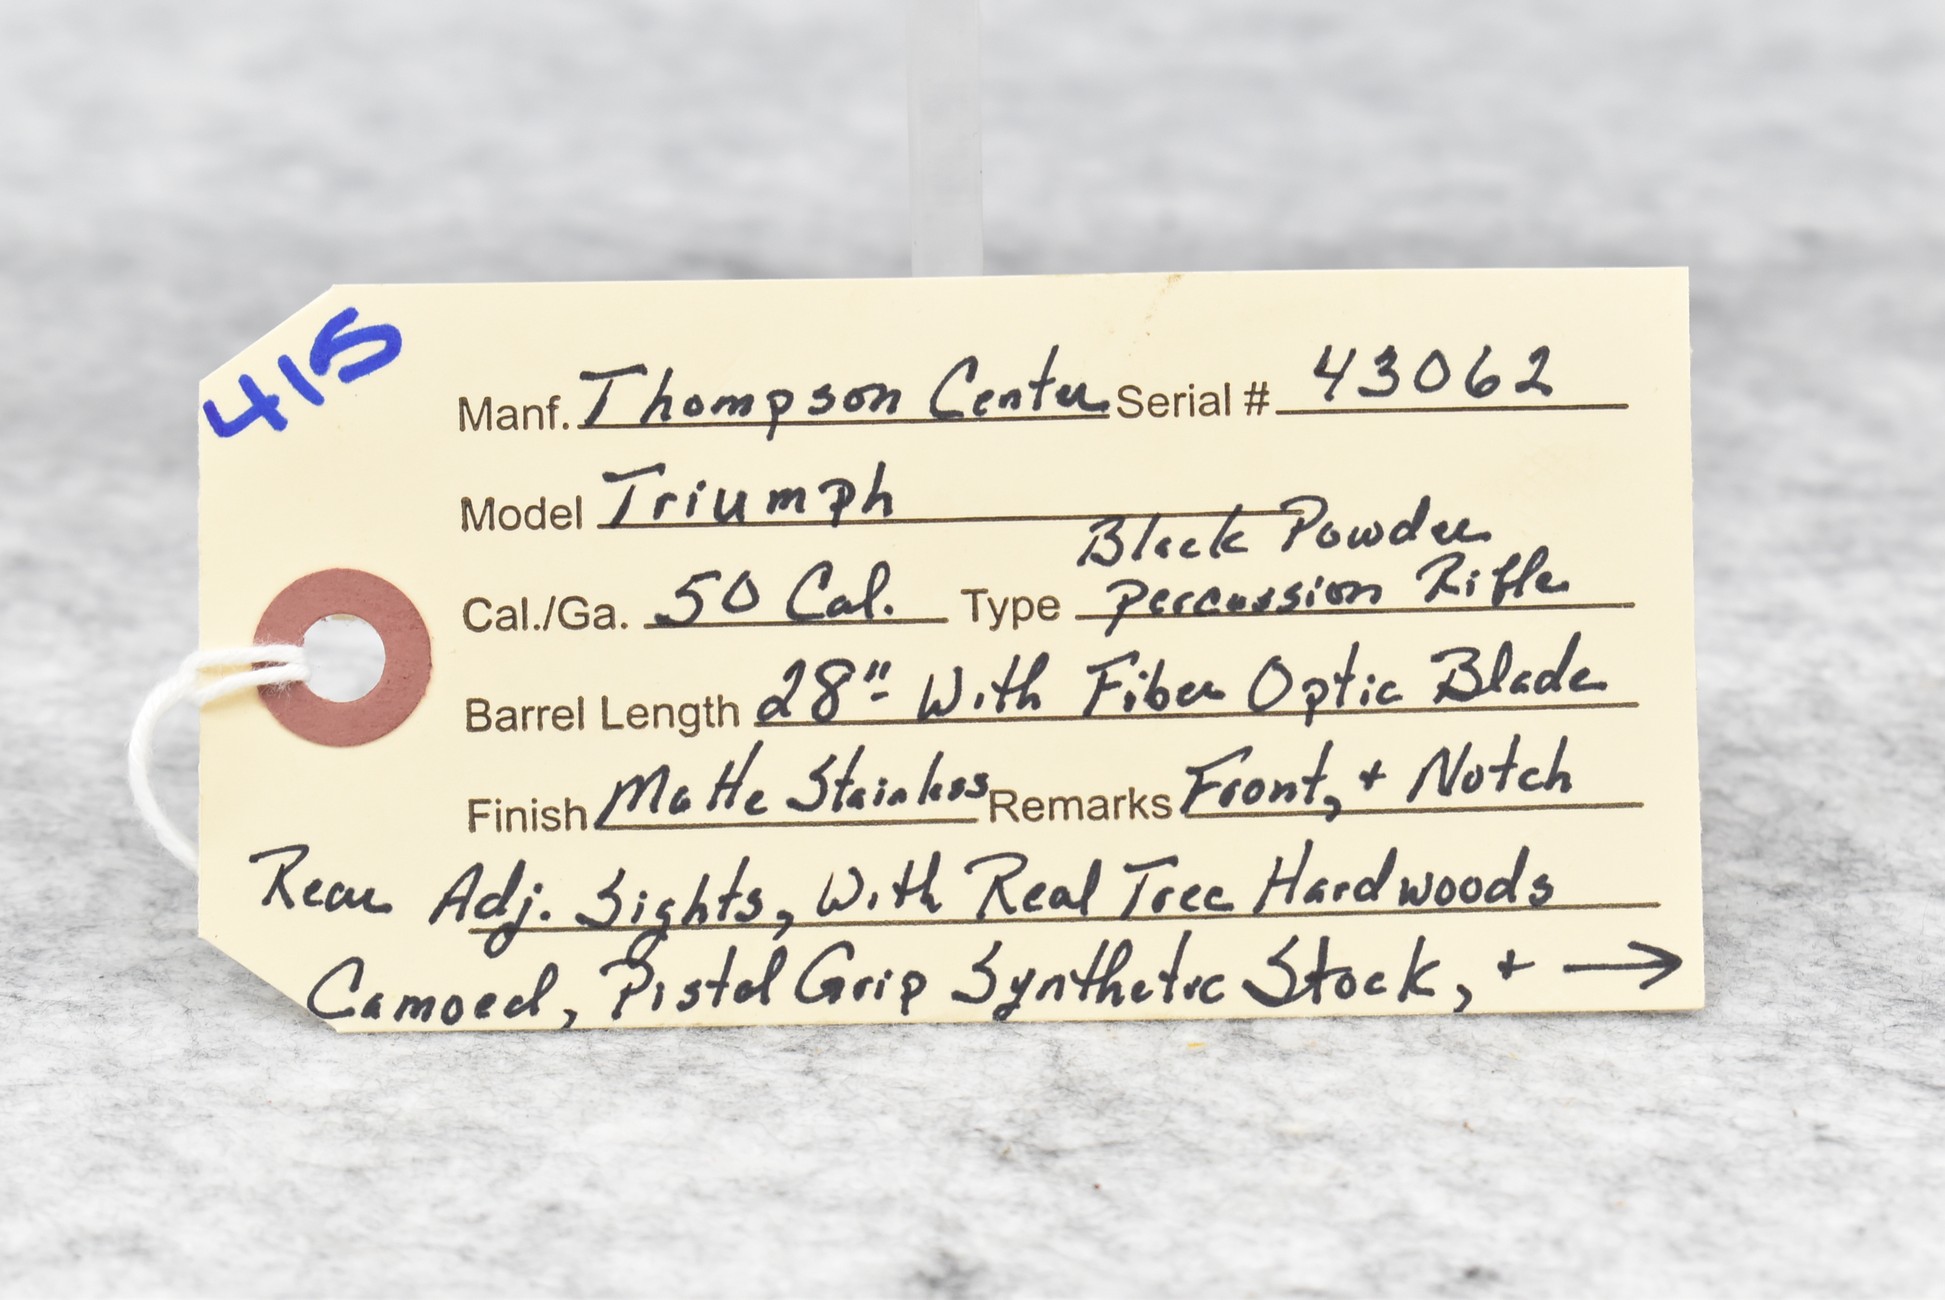 415
Manf. Thompson Center Serial # 43062
Model Triumph
Black Powder
Cal./Ga. 50 Cal. Type Percussion Rifle
Barrel Length 28" With Fiber Optic Blade
Finish Matte Stainless Remarks Front, + Notch
Rear Adj. Sights, With Real Tree Hardwoods
Camoed, Pistol Grip Synthetic Stock, + →